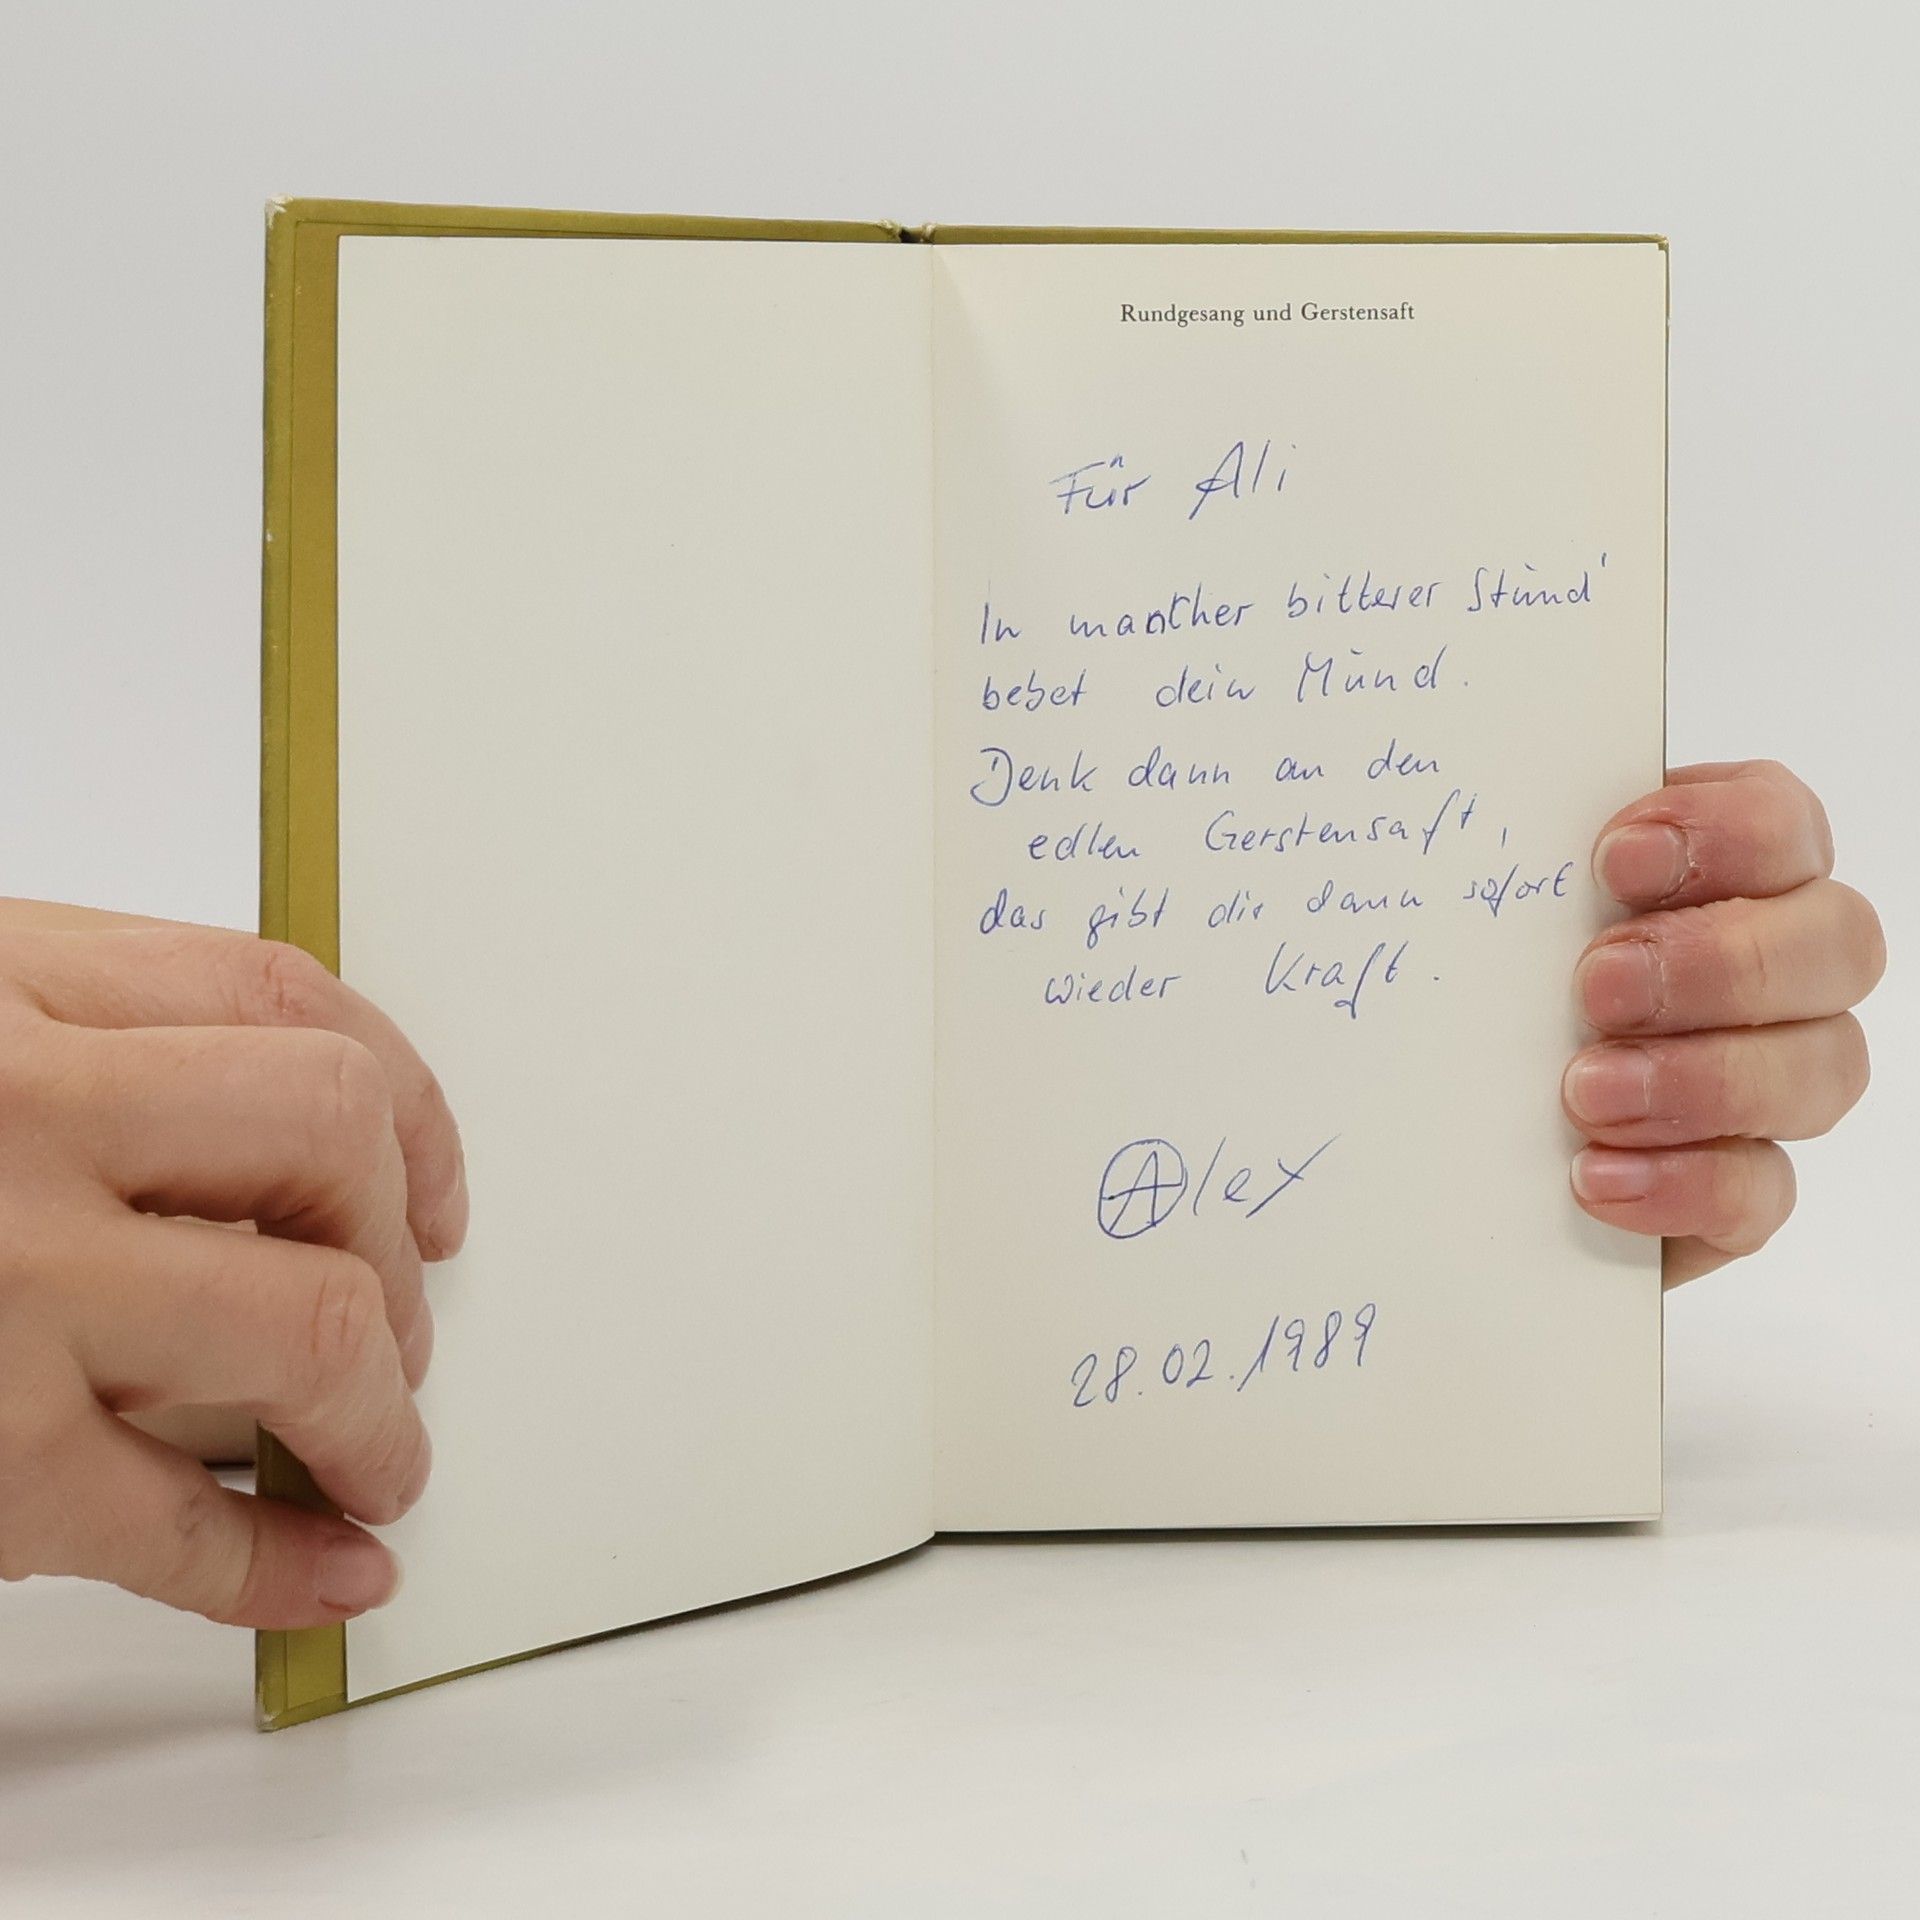 Rundgesang und Gerstensaft
Für Ali
In mancher bitterer Stund'
bebet dein Mund.
Denk dann an den
edlen Gerstensaft,
das gibt dir dann sofort
wieder Kraft.
Alex
28.02.1989